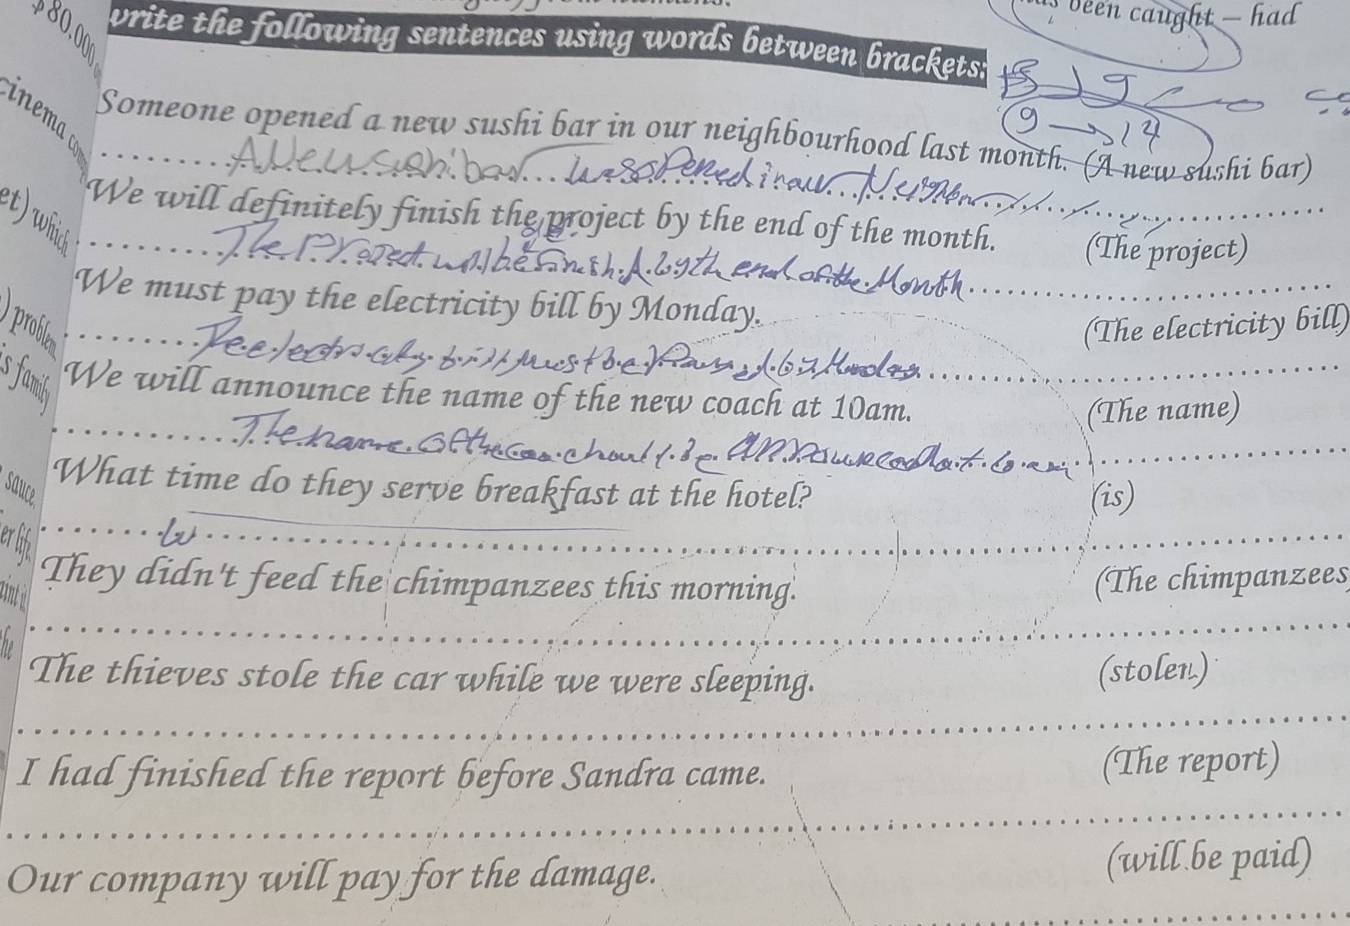 been caught – had
write the following sentences using words between brackets:
$80,000
cinema
Someone opened a new sushi bar in our neighbourhood last month. (A new sushi bar)
A New sushi bar was opened in our
et) which
We will definitely finish the project by the end of the month. (The project)
The Project will be finish.d by the end of the Month
) problem
We must pay the electricity bill by Monday. (The electricity bill)
bill must be by Monday
is family
We will announce the name of the new coach at 10am. (The name)
The name of the coach
sauce
What time do they serve breakfast at the hotel? (is)
er life
They didn't feed the chimpanzees this morning. (The chimpanzees
the
The thieves stole the car while we were sleeping. (stolen)
I had finished the report before Sandra came. (The report)
Our company will pay for the damage. (will be paid)
9 → 14